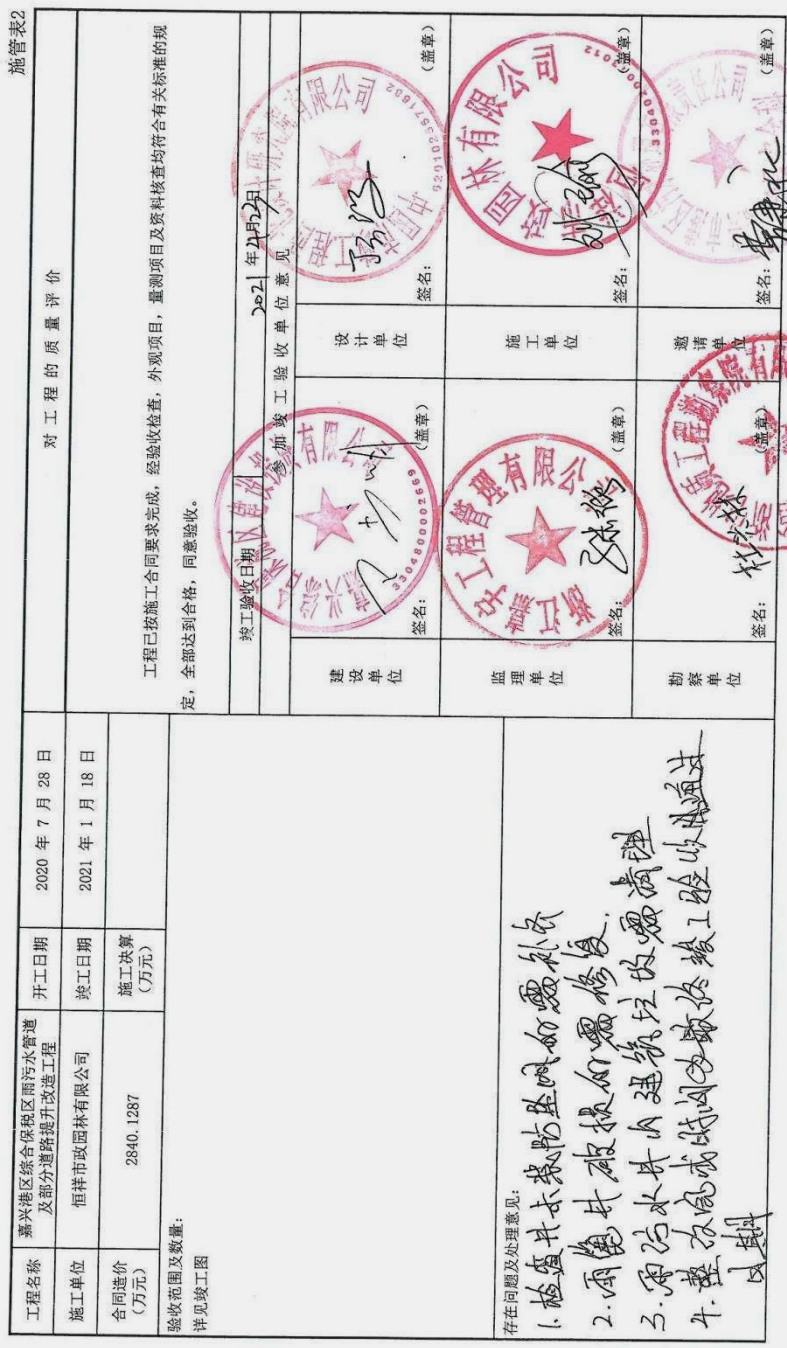 施管表2
工程名称
嘉兴港区综合保税区雨污水管道
及部分道路提升改造工程
开工日期
2020 年 7 月 28 日
施工单位
恒祥市政园林有限公司
竣工日期
2021 年 1 月 18 日
合同造价
(万元)
2840.1287
施工决算
(万元)
验收范围及数量:
详见竣工图
存在问题及处理意见:
1. 检查井未装防坠网的需补装
2. 雨篦井破损的需修复.
3. 雨污水井内建筑垃圾需清理
4. 整改完成时间为最终竣工验收通过
日期
对工程的质量评价
工程已按施工合同要求完成，经验收检查，外观项目，量测项目及资料核查均符合有关标准的规
定，全部达到合格，同意验收。
竣工验收日期
2021 年 4 月 23 日
参加竣工验收单位意见
建设单位
签名:
(盖章)
3304800002569
设计单位
签名:
(盖章)
监理单位
签名:
(盖章)
工程管理有限公司
施工单位
签名:
(盖章)
市政园林有限公司
勘察单位
签名:
(盖章)
邀请单位
签名:
(盖章)